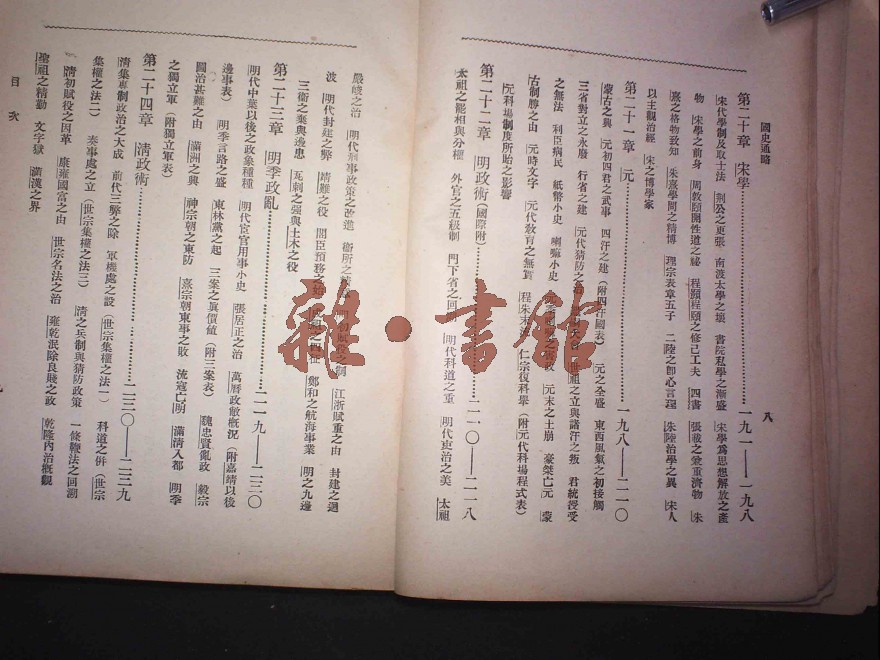 國史通略
八
第二十章 宋學⋯⋯⋯⋯一九一—一九八
宋代學制及取士法 荊公之更張 南渡太學之壞 書院私學之漸盛 宋學爲思想解放之產
物 宋學之前身 周敦頤闡性道之祕 程顥程頤之修己工夫 四書 張載之兼重濟物 朱
熹之格物致知 朱熹學問之精博 理宗表章五子 二陸之卽心言理 朱陸治學之異 宋人
以主觀治經 宋之博學家
第二十一章 元⋯⋯⋯⋯一九八—二一〇
蒙古之興 元初四君之武事 四汗之建（附四汗國表） 元之全盛 東西風氣之初接觸
三省對立之永廢 行省之建 元代猜防之治 世祖之立與諸汗之叛 君統授受
之無法 利臣病民 紙幣小史 喇嘛小史 元末之土崩 豪桀亡元 蒙
古制勝之由 元時文字 元代敎育之無實 程朱 仁宗復科舉（附元代科場程式表）
元科場制度所貽之影響
第二十二章 明政術（國際附）⋯⋯⋯⋯二一〇—二一八
太祖之罷相與分權 外官之五級制 門下省之回 明代科道之重 明代吏治之美 太祖
嚴峻之治 明代刑事政策之改進 衞所之 賦 之制 江浙賦重之由 封建之週
波 明代封建之弊 靖難之役 閣臣預務之始 成祖之四征 鄭和之航海事業 明之九邊
三衞之棄與邊患 瓦剌之强與土木之役
第二十三章 明季政亂⋯⋯⋯⋯二一九—二三〇
明代中葉以後之政象種種 明代宦官用事小史 張居正之治 萬曆政敝槪況（附嘉靖以後
邊事表） 明季言路之盛 東林黨之起 三案之眞價値（附三案表） 魏忠賢亂政 毅宗
圖治甚難之由 滿洲之興 神宗朝之東防 熹宗朝東事之敗 流寇亡明 滿淸入都 明季
之獨立軍（附獨立軍表）
第二十四章 淸政術⋯⋯⋯⋯二三〇—二三九
淸集專制政治之大成 前代三弊之除 軍機處之設（世宗集權之法一） 科道之併（世宗
集權之法二） 奏事處之立（世宗集權之法三） 淸之兵制與猜防政策 一條鞭法之回溯
淸初賦役之因革 康雍國富之由 世宗名法之治 雍乾泯除良賤之政 乾隆內治槪觀
聖祖之精勤 文字獄 滿漢之界
目次
雜·書館